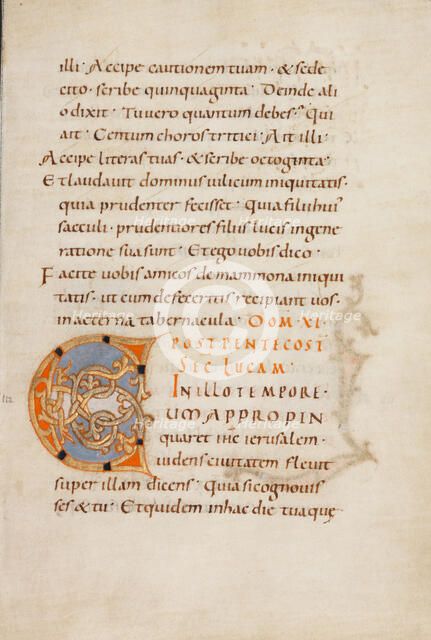 illi· Accipe cautionem tuam· & sede
cito· scribe quinquaginta· Deinde ali
o dixit· Tu vero quantum debes? Qui
ait· Centum choros tritici· Ait illi·
Accipe literas tuas· & scribe octoginta·
Et laudavit dominus vilicum iniquitatis·
quia prudenter fecisset· Quia filii hui'
saeculi· prudentiores filiis lucis in gene
ratione sua sunt· Et ego vobis dico·
Facite vobis amicos de mammona iniqui
tatis· ut cum defeceritis recipiant vos·
in aeterna tabernacula· DOM XI·
POST PENTECOST
SEC LUCAM·
IN ILLO TEMPORE·
CUM APPROPIN
quaret ihc ierusalem·
videns civitatem flevit
super illam dicens· Quia si cognovis
ses & tu· Et quidem in hac die tua quę
112
Heritage
Heritage
Heritage
Heritage
Heritage
Heritage